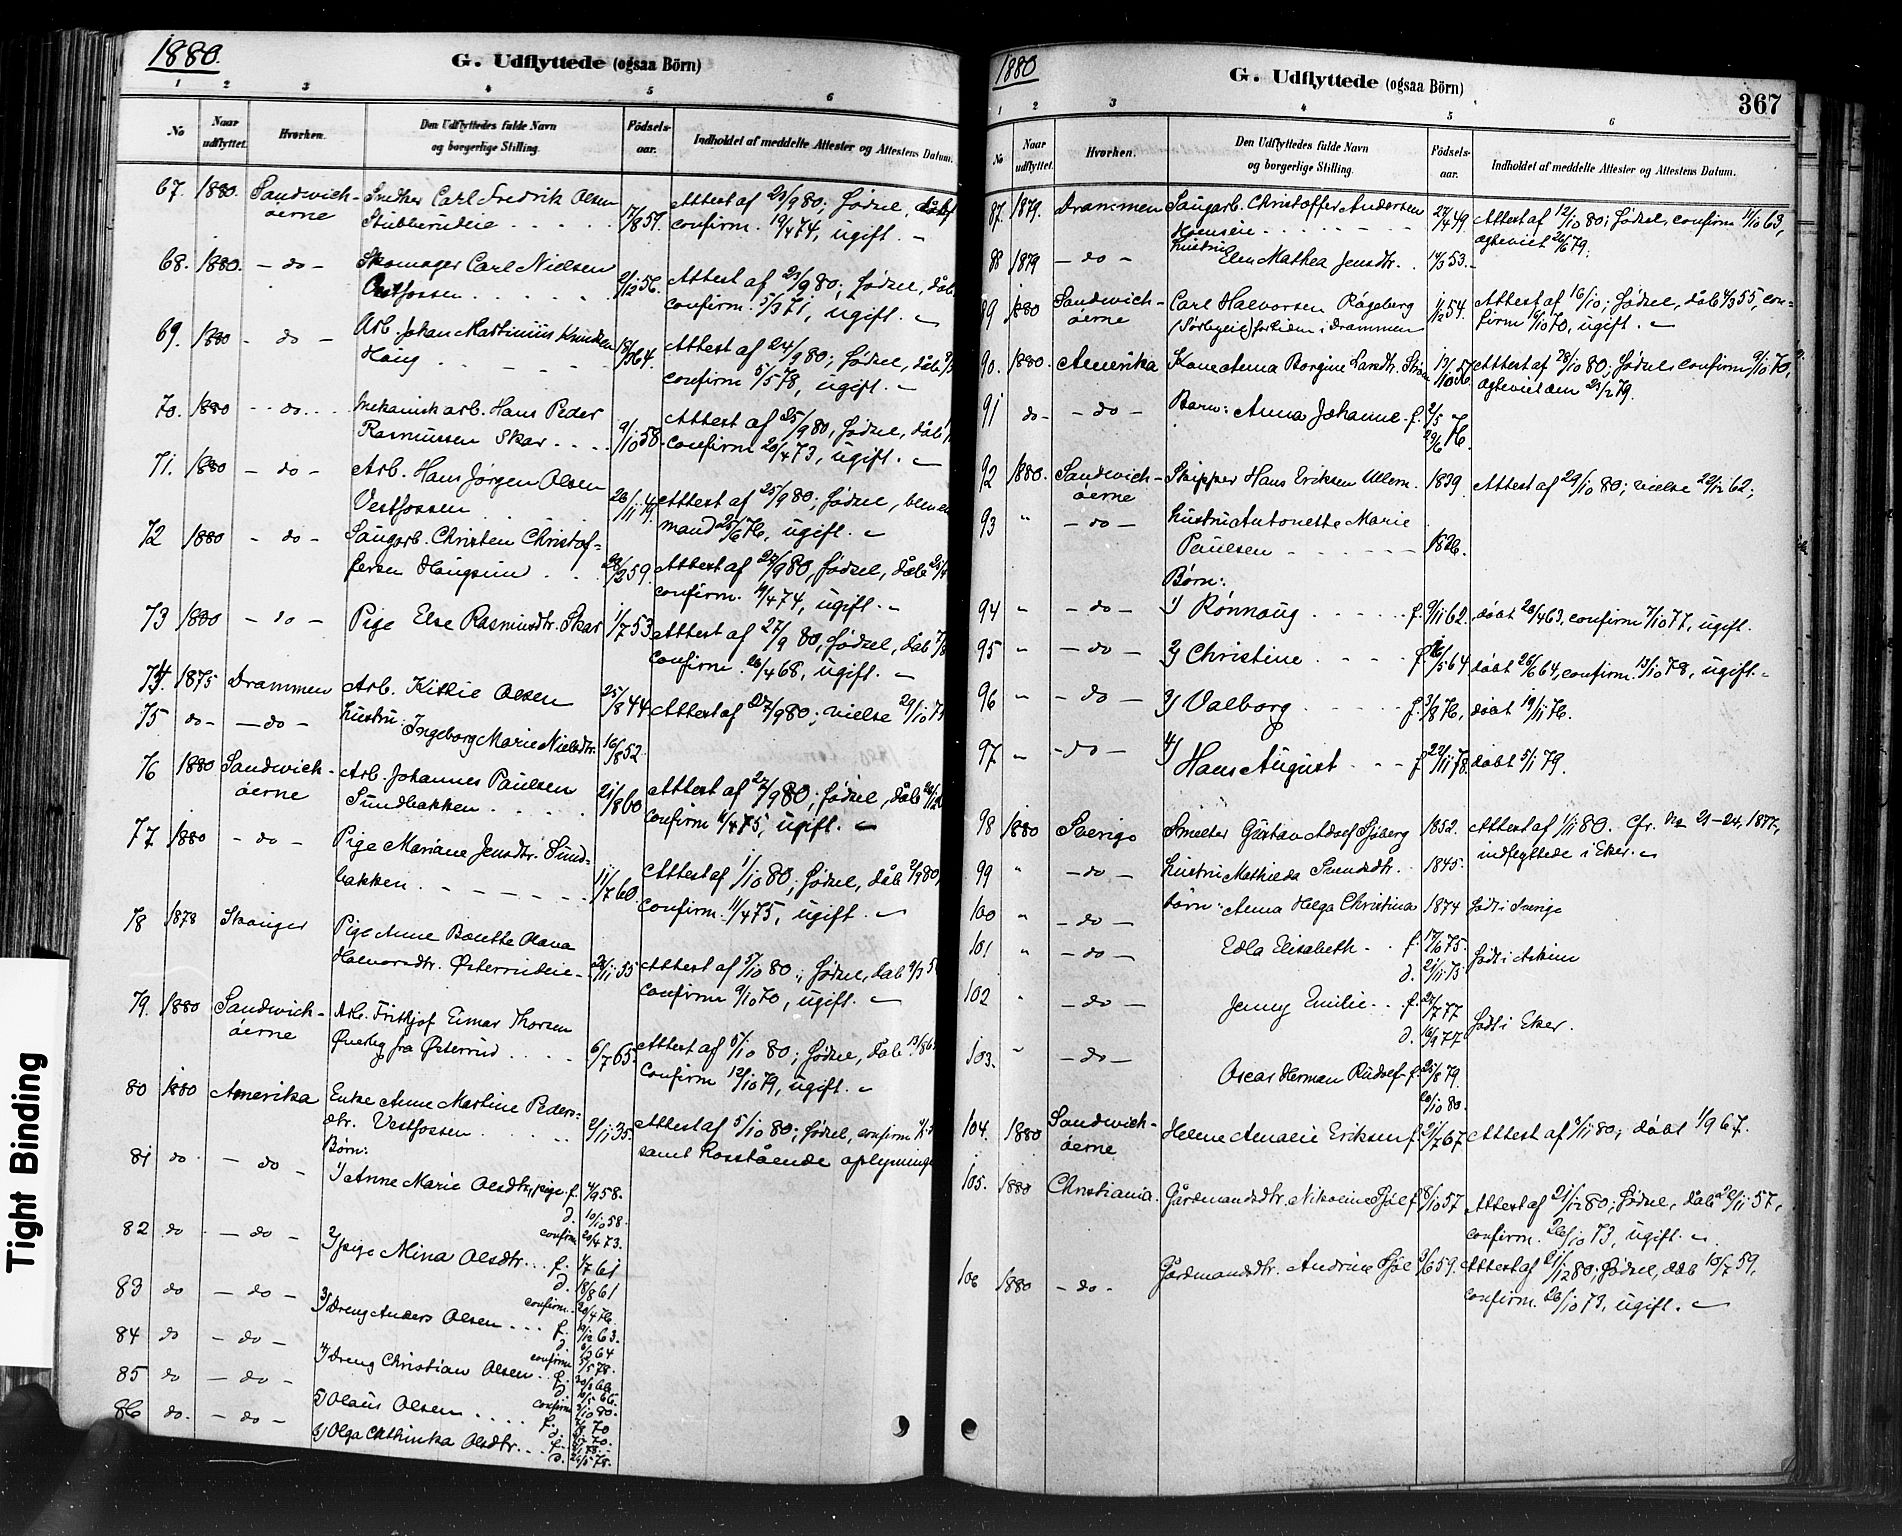 1880.
G. Udflyttede (ogsaa Börn)
1 2 3 4 5 6
No
Naar udflyttet.
Hvorhen.
Den Udflyttedes fulde Navn og borgerlige Stilling.
Födsels-aar.
Indholdet af meddelte Attester og Attestens Datum.
67. 1880. Sandwich- Carl Fredrik Olsen Attest af 23/9 80; födsel, dåb
öerne Stubberudeie 17/8 59. confirm. 19/4 74, ugift.
68. 1880. - do - Skomager Carl Nielsen Attest af 23/9 80; födsel, dåb
2/12 56. confirm. 5/3 71, ugift.
69. 1880 - do - Arb. Johan Martinius Knudsen Attest af 24/9 80; födsel, dåb
Haug 64. confirm 5/5 78, ugift.
70. 1880 - do - Mekanisk arb. Hans Peder Attest af 25/9 80, födsel, dåb
Rasmussen Skar 9/10 58. confirm 20/4 73, ugift.
71. 1880 - do - Arb. Hans Jörgen Olsen
Vestfossen 23/11 49. Attest af 25/9 80; födsel,
mand 76, ugift.
72 1880 - do - Saugarb. Christen Christof-
fersen Haugsund 59. Attest af 27/9 80, födsel, dåb
confirm. 19/4 74, ugift.
73 1880 - do - Pige Else Rasmusdtr. Skar 1/7 53 Attest af 27/9 80, födsel, dåb
confirm. 26/4 68, ugift.
74. 1875 Drammen Arb. Kittil Olsen 25/8 44 Attest af 27/9 80; vielse 29/10
75 do - - do - hustru: Ingeborg Marie Nielsdtr. 16/8 52.
76 1880 Sandwich- Arb. Johannes Paulsen
öerne Sundbakken 21/8 60 Attest af 27/9 80; födsel, dåb
confirm 11/4 75, ugift.
77 1880 - do - Pige Mariane Jensdtr. Sund-
bakken 11/7 60. Attest af 1/10 80; födsel, dåb 2/9 80,
confirm. 11/4 75, ugift
78 1878 Stavanger Pige Anne Olava
Halvorsdtr. Österudeie 55 Attest af 5/10 80; födsel, dåb
confirm 9/10 70, ugift.
79. 1880 Sandwich- Arb. Frithjof Einar Thorsen
öerne fra Österud 6/7 65. Attest af 5/10 80; födsel, dåb
confirm 12/10 79, ugift.
80 1880 Amerika Enke Anne Martine Peders-
dtr. Vestfossen 2/11 35. Attest af 5/10 80; födsel, confirm
samt hosstående oplysninge
Börn:
81 do. - do - 1) Anne Marie Olsdtr, pige f. 4/9 58.
d. 10/10 58.
confirm 20/4 73.
82 do - do - 2) pige Mina Olsdtr. f. 4/7 61
d. 18/8 61
confirm. 20/4 76.
83 do - do - 3) Dreng Anders Olsen f. 19/12 63.
d. 64
confirm 5/5 78.
84 do - do - 4) Dreng Christian Olsen f. 66
d. 66.
confirm 80.
85 do - do - 5) Olaus Olsen f. 70
d. 70.
86 do. - do - 6) Olga Cathinka Olsdtr. f. 78.
d. 78.
1880
G. Udflyttede (ogsaa Börn)
367
1 2 3 4 5 6
No
Naar udflyttet.
Hvorhen.
Den Udflyttedes fulde Navn og borgerlige Stilling.
Födsels-aar.
Indholdet af meddelte Attester og Attestens Datum.
87. 1879. Drammen Saugarb. Christoffer Andersen 27/4 49. Attest af 12/10 80; födsel, confirm 11/10 63,
Hoenseie ægteviet 26/6 79.
88 1879 - do - hustru Elen Mathea Jensdtr. 53.
89 1880 Sandwich- Carl Halvorsen Rögeberg 1/12 54. Attest af 16/10; födsel, dåb 4/3 55, con-
öerne for tiden i Drammen firm 9/10 70, ugift.
90. 1880. Amerika Kone Anna Borgine Larsdtr. Attest af 28/10 80; födsel confirm 9/10 70,
ægteviet den 23/12 79.
91 do - - do - Barn: Anna Johanne f. 2/5
76.
92 1880. Sandwich- Skipper Hans Eriksen Ullern. 1839. Attest af 29/10 80; vielse 29/12 62;
öerne
93 " - do - hustru Antonette Marie
Paulsen 1836.
Börn:
94 " - do - 1) Rönnaug f. 9/11 62. döbt 23/4 63, confirm 7/10 77, ugift.
95 " - do - 2) Christine f. 16/5 64 döbt 26/6 64, confirm. 13/10 78, ugift.
96 " - do 3) Valborg f. 3/8 76, döbt 19/11 76.
97 " - do - 4) Hans August f. 22/11 78. döbt 5/1 79.
98 1880 Sverige Smelter Gustav Adolf Sjöberg 1852. Attest af 1/11 80. Cfr. No 21-24, 1877,
indflyttede i Eker.
99 " - do - hustru Mathilda Svensdtr. 1845.
100 " - do - börn: Anna Helga Christina 1874 födt i Sverige
101 " - do - Edla Elisabeth f. 17/6 75. födt i Askim
d. 21/11 75
102 " - do - Jenny Emilie f. 24/7 77 födt i Eker.
d. 16/9 77
103. " - do - Oscar Herman Rudolf f. 25/8 79.
20/10 80.
104. 1880 Sandwich- Helene Amalie Eriksen f. 21/7 67 Attest af 80; döbt 1/9 67.
öerne
105. 1880 Christiania. Gårdmandsdtr. Nikoline Sjöl f. 8/10 57 Attest af 21/12 80; födsel, dåb 22/11 57,
confirm. 26/10 73, ugift.
106 1880 - do - Gårdmandsdtr. Andrine Sjöl 3/6 59. Attest af 21/12 80; födsel, dåb 10/7 59,
confirm. 26/10 73, ugift.
Tight Binding